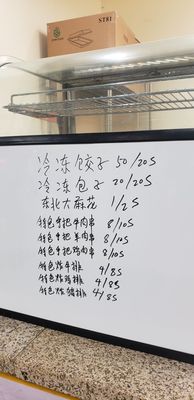 ST81
冷冻饺子 50/20S
冷冻包子 20/20S
东北大麻花 1/2S
特色手把牛肉串 8/10S
特色手把羊肉串 8/10S
特色手把鸡肉串 8/10S
特色炸牛排 4/8S
特色炸鸡排 4/8S
特色炸猪排 4/8S